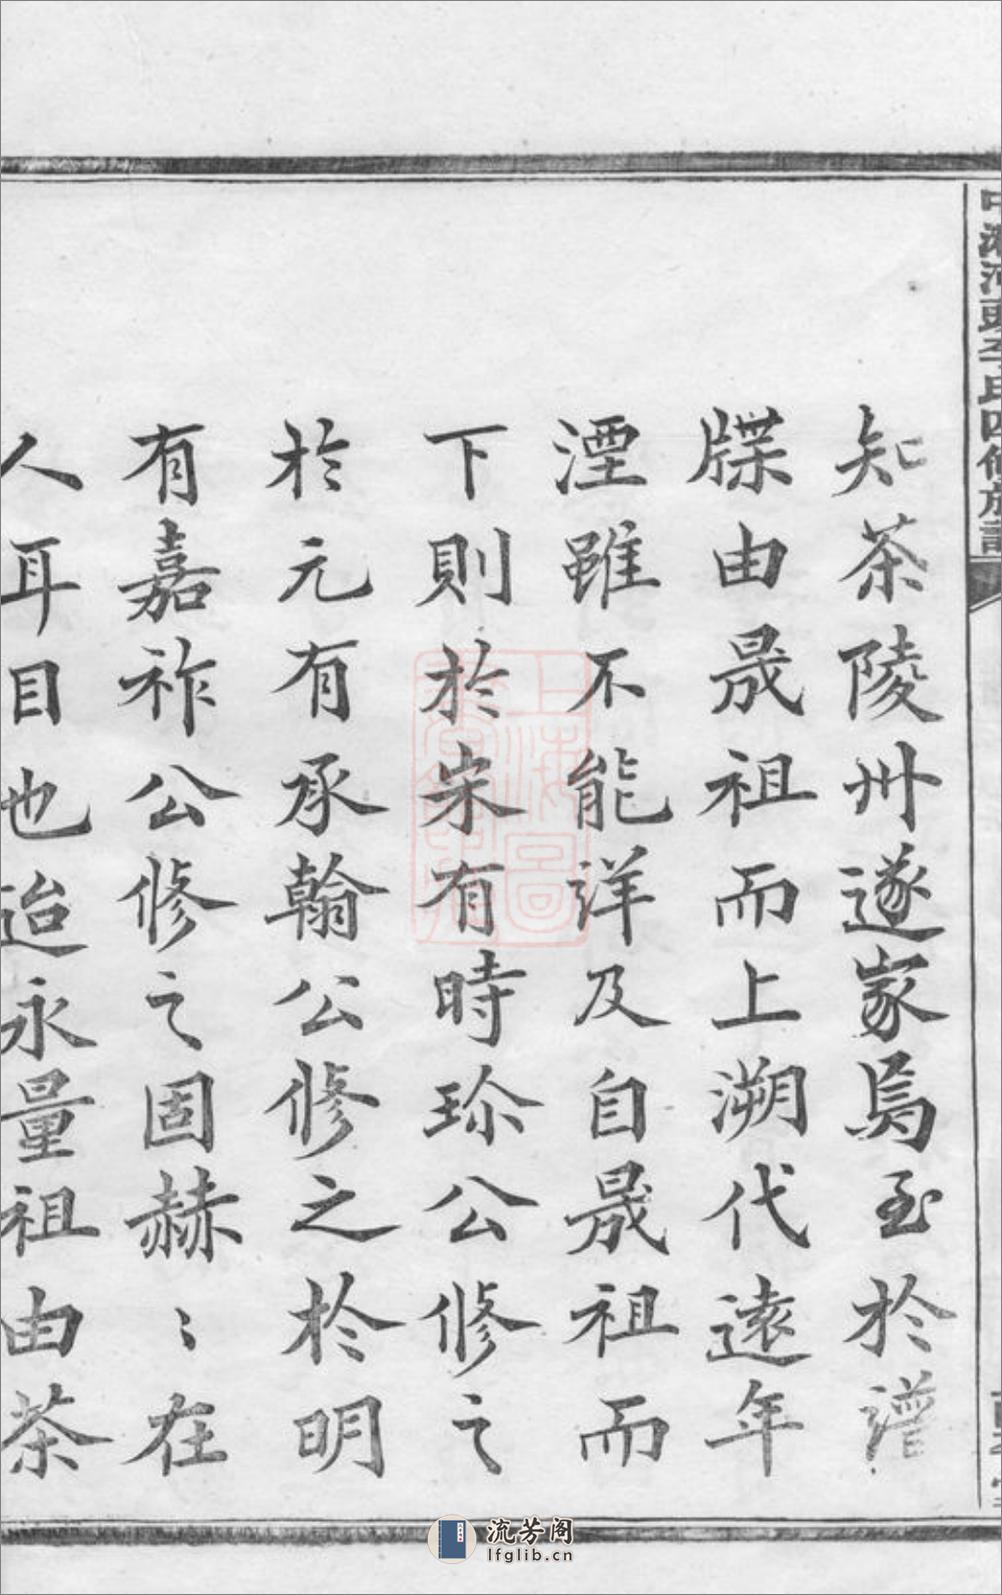 知茶陵州遂家焉至於譜
牒由晟祖而上溯代遠年
湮雖不能詳及自晟祖而
下則於宋有時珍公修之
於元有承翰公修之於明
有嘉祚公修之固赫〻在
人耳目也迨永量祖由茶
河頭李氏四修族譜
上海圖
流芳阁
lfglib.cn